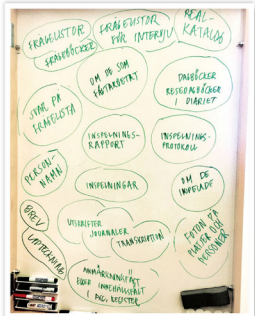 FRÅGELISTOR
FRÅGEBÖCKER
FRÅGELISTOR
FÖR INTERVJU
REAL-
KATALOG
OM DE SOM
FÄLTARBETAT
DAGBÖCKER
RESEDAGBÖCKER
I DIARIET
SVAR PÅ
FRÅGELISTA
INSPELNINGS-
RAPPORT
INSPELNINGS-
PROTOKOLL
PERSON-
NAMN
INSPELNINGAR
OM DE
INSPELADE
BREV
UPPTECKNING
UTSKRIFTER
JOURNALER
TRANSKRIPTION
FOTON PÅ
PLATSER OCH
PERSONER
ANMÄRKNINGSFÄLT
ELLER INNEHÅLLSFÄLT
REGISTER